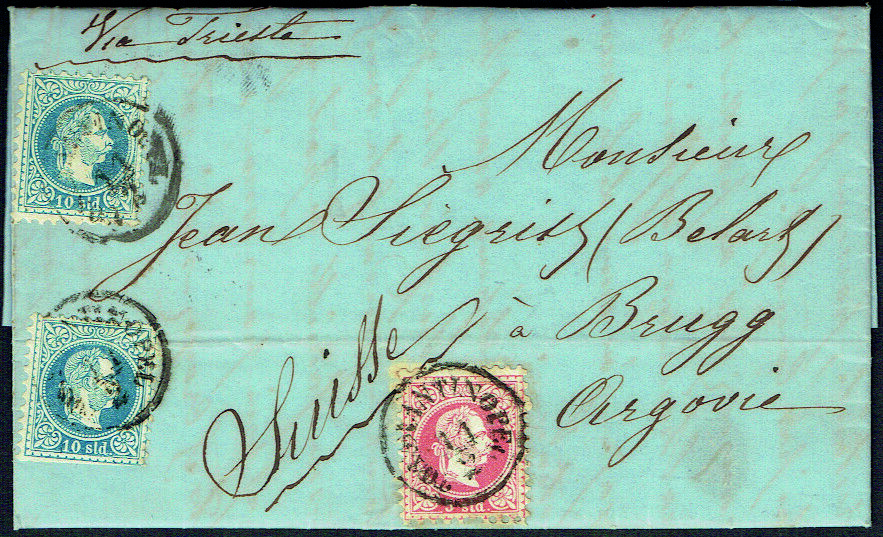 Via Trieste
10 sld.
Monsieur
Jean Siegrist (Belart)
à Brugg
Suisse
Argovie
10 sld.
CONSTANTINOPEL
11
5 sld.